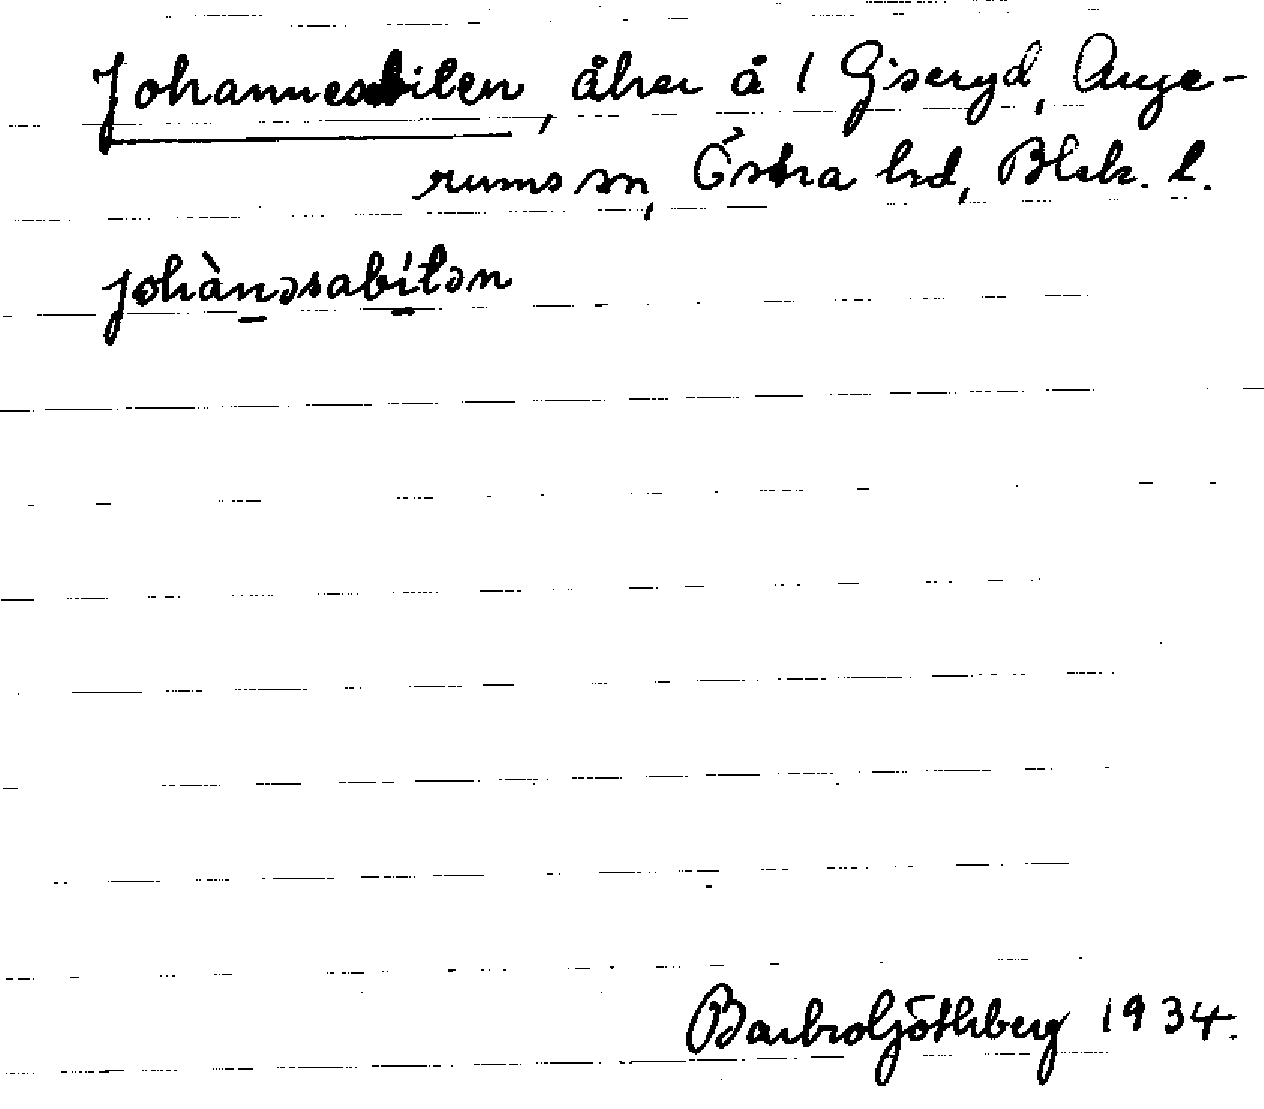 Johannesbiten, åker å 1 Giseryd, Auge-
rums sn, Östra hd, Blek. l.
johànəsabítən
Barbro Göthberg 1934.